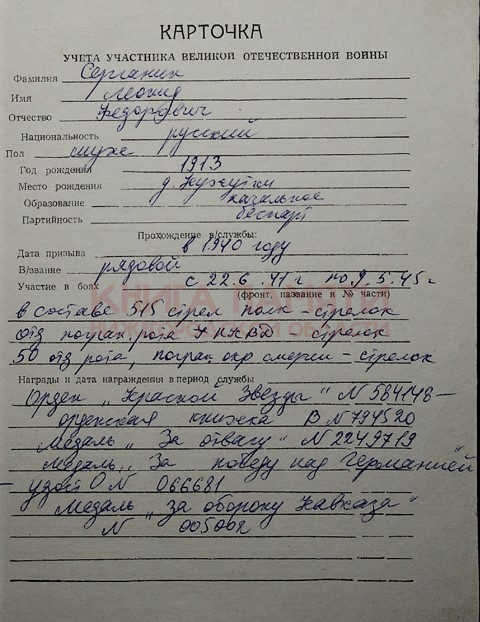 КАРТОЧКА
УЧЕТА УЧАСТНИКА ВЕЛИКОЙ ОТЕЧЕСТВЕННОЙ ВОЙНЫ
Фамилия Серганин
Имя Леонид
Отчество Федорович
Национальность русский
Пол муж
Год рождения 1913
Место рождения д.
Образование начальное
Партийность беспарт
Прохождение в/службы:
Дата призыва в 1940 году
В/звание рядовой
Участие в боях с 22.6.41 г по 9.5.45 г
(фронт, название и № части)
КНИГА ПАМЯТИ
в составе 515 стрел полк - стрелок
отд погран. рота НКВД стрелок
50 отд рота, погран окр смерш - стрелок
Награды и дата награждения в период службы
Орден „Красной Звезды" N 584148 —
орденская книжка В N 794520
Медаль „За отвагу" N 2249719
Медаль „За победу над Германией"
— удост О N 066681
Медаль „За оборону Кавказа"
N 005002